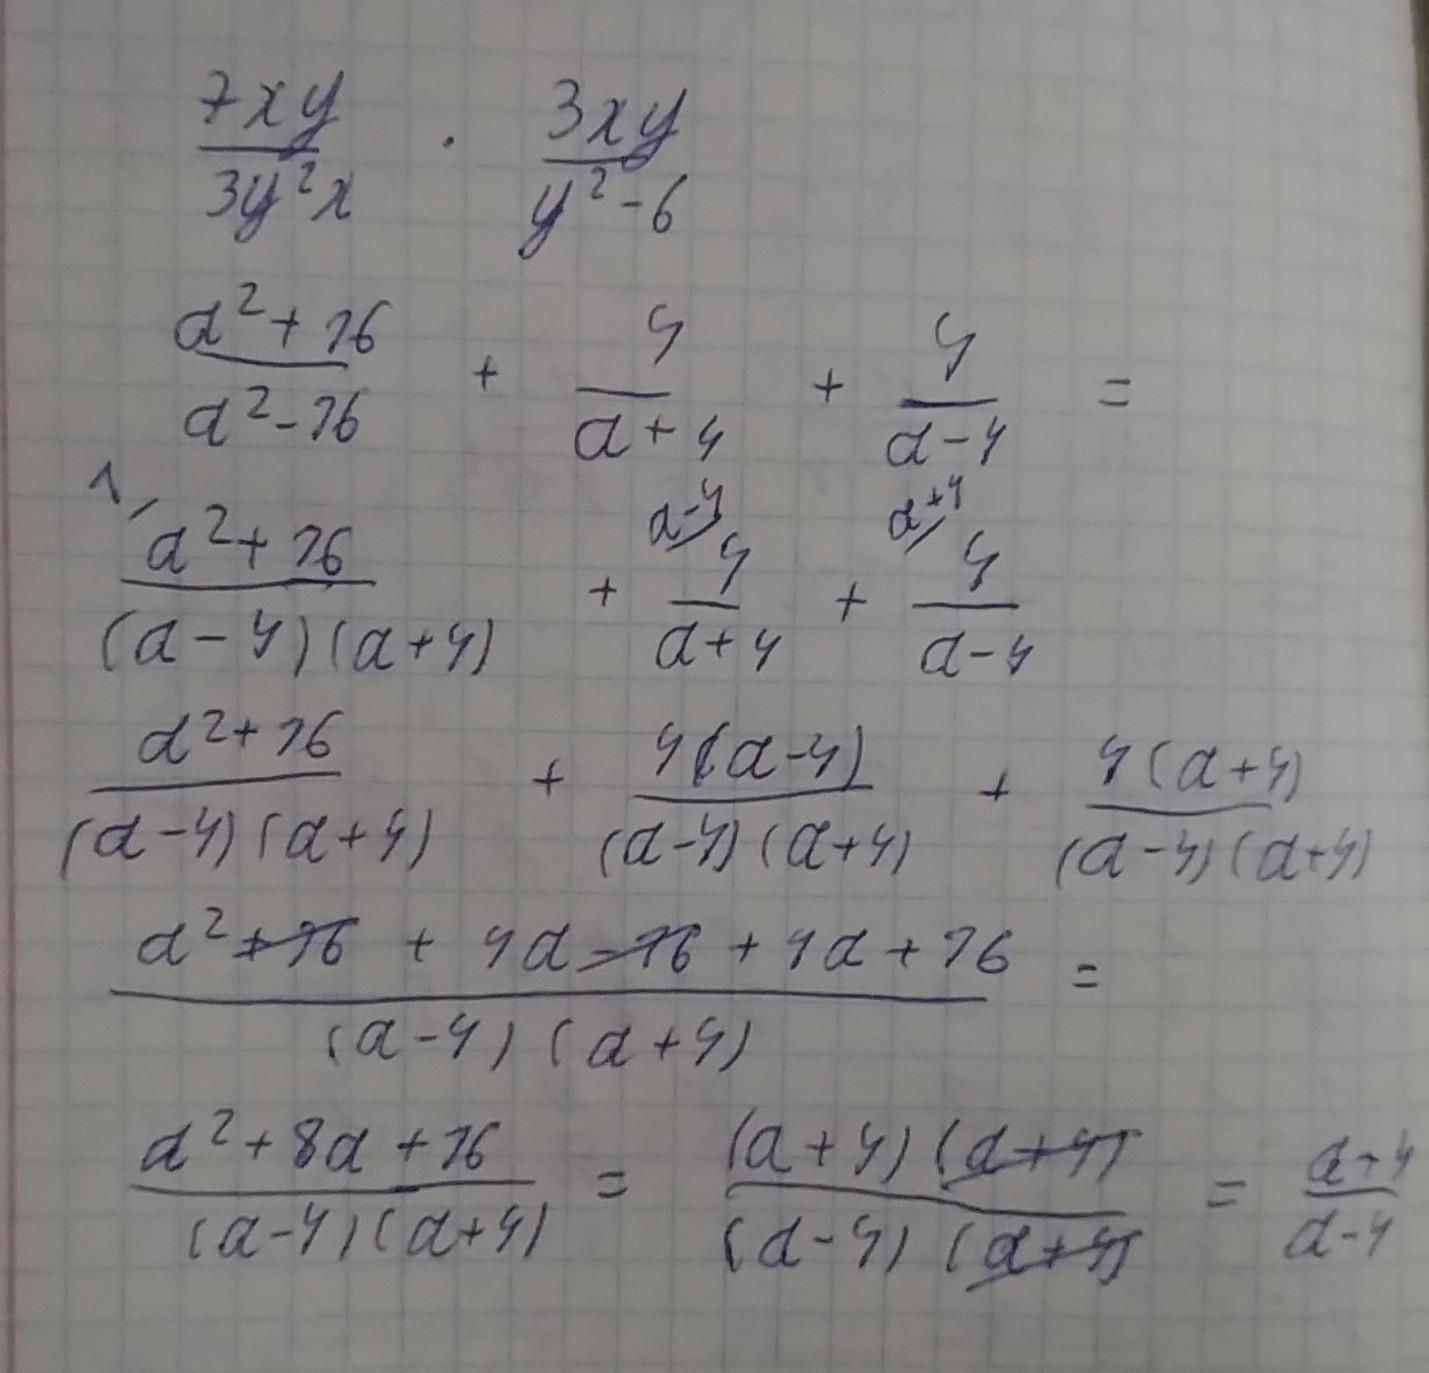 7xy/3y²x · 3xy/y²-6
a²+16/a²-16 + 4/a+4 + 4/a-4 =
1/ a-4/ a+4/
a²+16/(a-4)(a+4) + 4/a+4 + 4/a-4
a²+16/(a-4)(a+4) + 4(a-4)/(a-4)(a+4) + 4(a+4)/(a-4)(a+4)
a²+16 + 4a-16 + 4a+16/(a-4)(a+4) =
a²+8a+16/(a-4)(a+4) = (a+4)(a+4)/(a-4)(a+4) = a+4/a-4